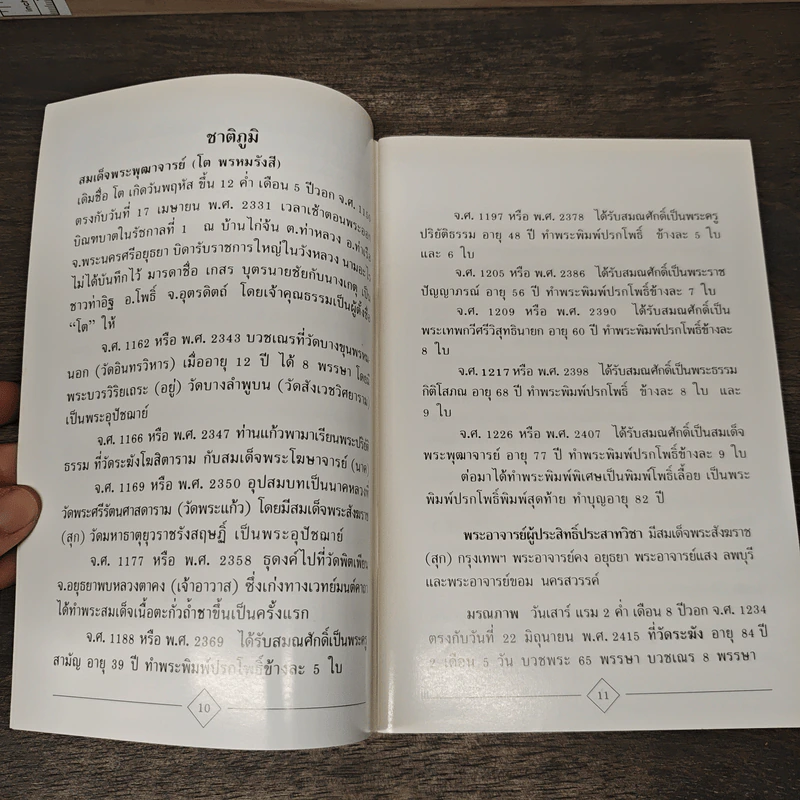 ชาติภูมิ
สมเด็จพระพุฒาจารย์ (โต พรหมรังสี)
เดิมชื่อ โต เกิดวันพฤหัส ขึ้น 12 ค่ำ เดือน 5 ปีวอก จ.ศ.
ตรงกับวันที่ 17 เมษายน พ.ศ. 2331 เวลาเช้าตอนพระออก
บิณฑบาตในรัชกาลที่ 1 ณ บ้านไก่จ้น ต.ท่าหลวง อ.ท่าเรือ
จ.พระนครศรีอยุธยา บิดารับราชการใหญ่ในวังหลวง นามอะไร
ไม่ได้บันทึกไว้ มารดาชื่อ เกสร บุตรนายชัยกับนางเกตุ เป็น
ชาวท่าอิฐ อ.โพธิ์ จ.อุตรดิตถ์ โดยเจ้าคุณธรรมเป็นผู้ตั้งชื่อ
“โต” ให้
จ.ศ. 1162 หรือ พ.ศ. 2343 บวชเณรที่วัดบางขุนพรหม
นอก (วัดอินทรวิหาร) เมื่ออายุ 12 ปี ได้ 8 พรรษา โดยมี
พระบวรวิริยเถระ (อยู่) วัดบางลำพูบน (วัดสังเวชวิศยาราม)
เป็นพระอุปัชฌาย์
จ.ศ. 1166 หรือ พ.ศ. 2347 ท่านแก้วพามาเรียนพระปริยัติ
ธรรม ที่วัดระฆังโฆสิตาราม กับสมเด็จพระโฆษาจารย์ (นาค)
จ.ศ. 1169 หรือ พ.ศ. 2350 อุปสมบทเป็นนาคหลวงที่
วัดพระศรีรัตนศาสดาราม (วัดพระแก้ว) โดยมีสมเด็จพระสังฆราช
(สุก) วัดมหาธาตุยุวราชรังสฤษฎิ์ เป็นพระอุปัชฌาย์
จ.ศ. 1177 หรือ พ.ศ. 2358 ธุดงค์ไปที่วัดพิตเพียน
จ.อยุธยาพบหลวงตาคง (เจ้าอาวาส) ซึ่งเก่งทางเวทย์มนต์คาถา
ได้ทำพระสมเด็จเนื้อตะกั่วถ้ำชาขึ้นเป็นครั้งแรก
จ.ศ. 1188 หรือ พ.ศ. 2369 ได้รับสมณศักดิ์เป็นพระครู
สามัญ อายุ 39 ปี ทำพระพิมพ์ปรกโพธิ์ข้างละ 5 ใบ
10
จ.ศ. 1197 หรือ พ.ศ. 2378 ได้รับสมณศักดิ์เป็นพระครู
ปริยัติธรรม อายุ 48 ปี ทำพระพิมพ์ปรกโพธิ์ ข้างละ 5 ใบ
และ 6 ใบ
จ.ศ. 1205 หรือ พ.ศ. 2386 ได้รับสมณศักดิ์เป็นพระราช
ปัญญาภรณ์ อายุ 56 ปี ทำพระพิมพ์ปรกโพธิ์ข้างละ 7 ใบ
จ.ศ. 1209 หรือ พ.ศ. 2390 ได้รับสมณศักดิ์เป็น
พระเทพกวีศรีวิสุทธินายก อายุ 60 ปี ทำพระพิมพ์ปรกโพธิ์ข้างละ
8 ใบ
จ.ศ. 1217 หรือ พ.ศ. 2398 ได้รับสมณศักดิ์เป็นพระธรรม
กิติโสภณ อายุ 68 ปี ทำพระพิมพ์ปรกโพธิ์ ข้างละ 8 ใบ และ
9 ใบ
จ.ศ. 1226 หรือ พ.ศ. 2407 ได้รับสมณศักดิ์เป็นสมเด็จ
พระพุฒาจารย์ อายุ 77 ปี ทำพระพิมพ์ปรกโพธิ์ข้างละ 9 ใบ
ต่อมาได้ทำพระพิมพ์พิเศษเป็นพิมพ์โพธิ์เลื้อย เป็นพระ
พิมพ์ปรกโพธิ์พิมพ์สุดท้าย ทำบุญอายุ 82 ปี
พระอาจารย์ผู้ประสิทธิ์ประสาทวิชา มีสมเด็จพระสังฆราช
(สุก) กรุงเทพฯ พระอาจารย์คง อยุธยา พระอาจารย์แสง ลพบุรี
และพระอาจารย์ขอม นครสวรรค์
มรณภาพ วันเสาร์ แรม 2 ค่ำ เดือน 8 ปีวอก จ.ศ. 1234
ตรงกับวันที่ 22 มิถุนายน พ.ศ. 2415 ที่วัดระฆัง อายุ 84 ปี
2 เดือน 5 วัน บวชพระ 65 พรรษา บวชเณร 8 พรรษา
11